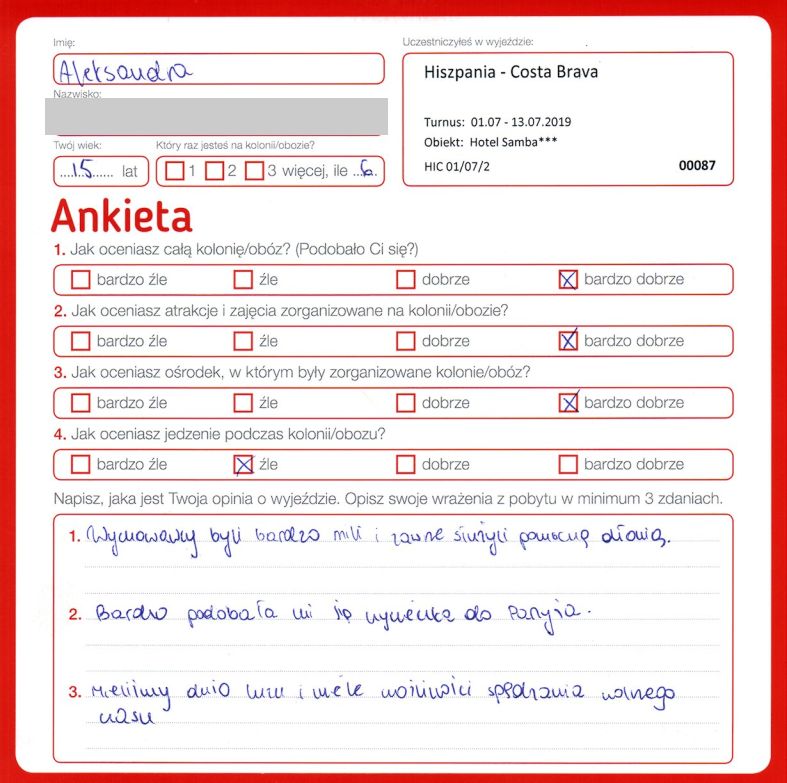 Imię:
Aleksandra
Nazwisko:
Twój wiek:
15 lat
Który raz jesteś na kolonii/obozie?
1 2 3 więcej, ile 6
Uczestniczyłeś w wyjeździe:
Hiszpania - Costa Brava
Turnus: 01.07 - 13.07.2019
Obiekt: Hotel Samba***
HIC 01/07/2 00087
Ankieta
1. Jak oceniasz całą kolonię/obóz? (Podobało Ci się?)
bardzo źle źle dobrze bardzo dobrze
2. Jak oceniasz atrakcje i zajęcia zorganizowane na kolonii/obozie?
bardzo źle źle dobrze bardzo dobrze
3. Jak oceniasz ośrodek, w którym były zorganizowane kolonie/obóz?
bardzo źle źle dobrze bardzo dobrze
4. Jak oceniasz jedzenie podczas kolonii/obozu?
bardzo źle źle dobrze bardzo dobrze
Napisz, jaka jest Twoja opinia o wyjeździe. Opisz swoje wrażenia z pobytu w minimum 3 zdaniach.
1. Wychowawcy byli bardzo mili i zawsze służyli pomocną dłonią.
2. Bardzo podobała mi się wycieczka do Paryża.
3. Mieliśmy dużo luzu i wiele możliwości spędzania wolnego
czasu